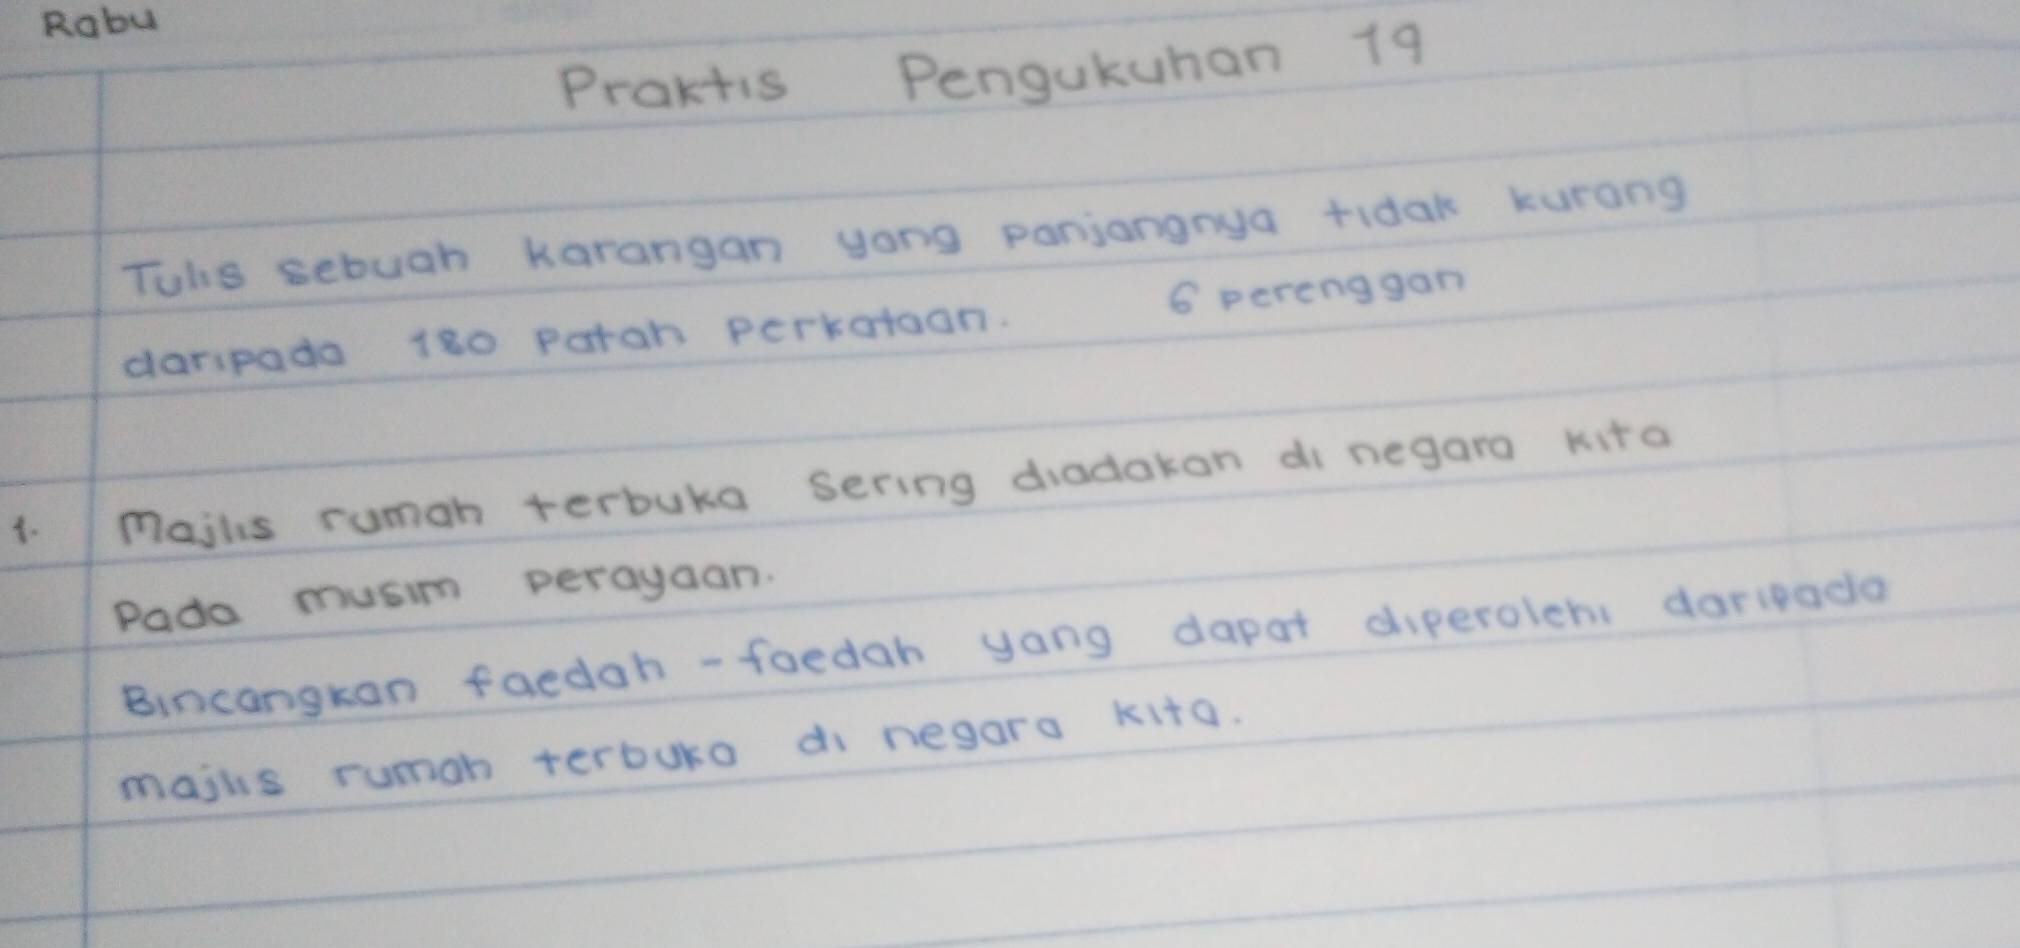 Rabu
Praktis Pengukuhan 19
Tulis sebuah karangan yang panjangnya tidak kurang
daripada 180 patah perkataan. 6 perenggan
1. Majlis rumah terbuka sering diadakan di negara kita
pada musim perayaan.
Bincangkan faedah-faedah yang dapat diperolehi daripada
majlis rumah terbuka di negara kita.